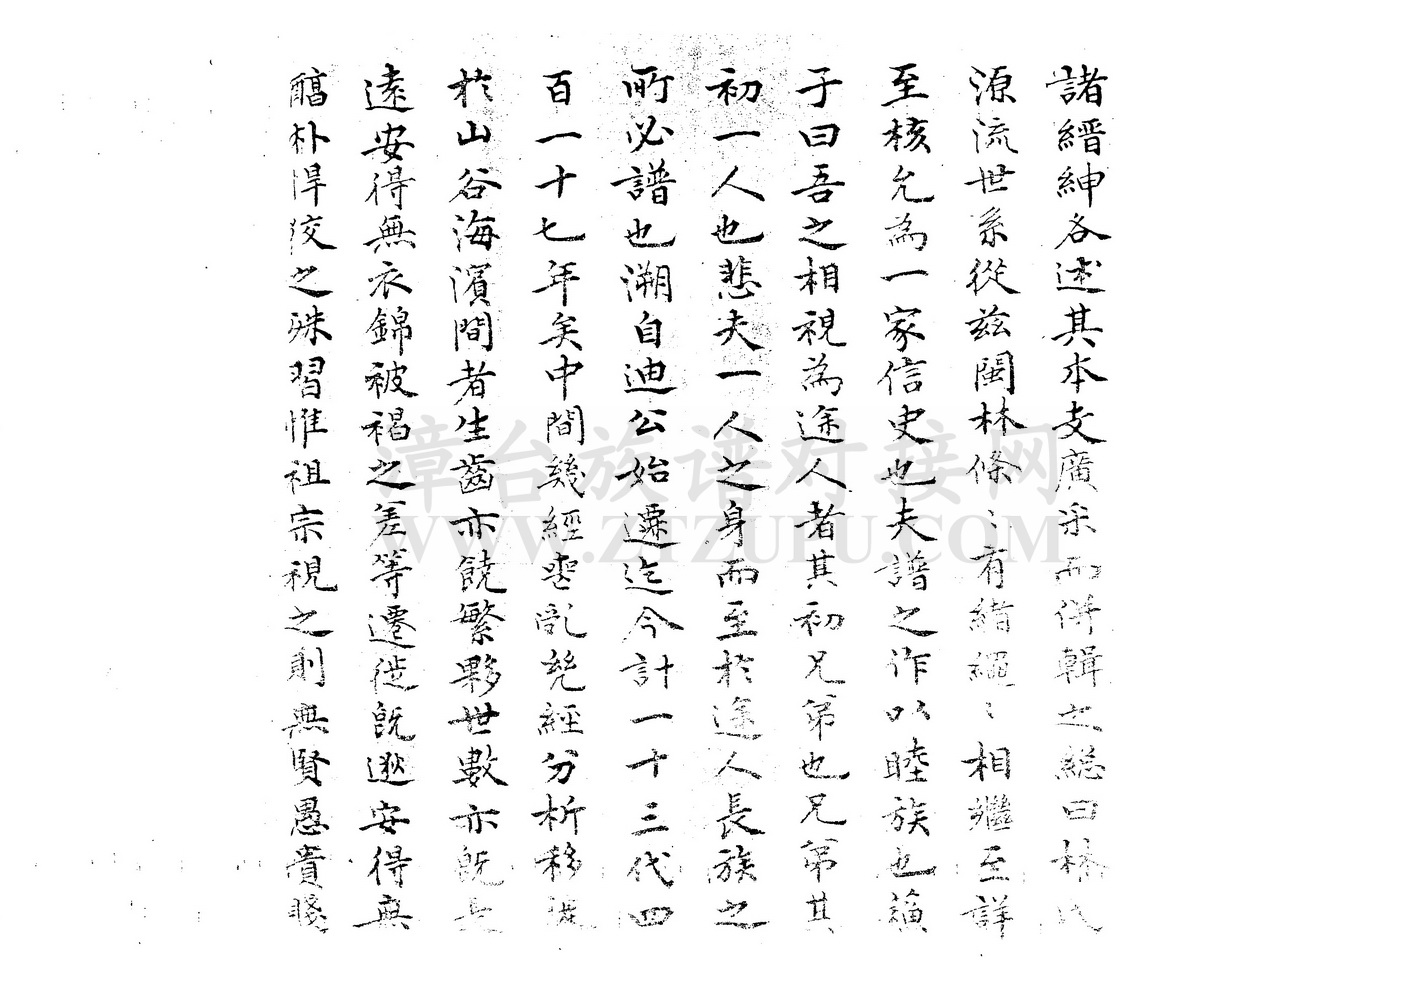 諸縉紳各述其本支廣采而併輯之總曰林氏
源流世系從茲閩林條〻有緒繩〻相繼至詳
至核允為一家信史也夫譜之作以睦族也蘓
子曰吾之相視為途人者其初兄弟也兄弟其
初一人也悲夫一人之身而至於途人長族之
所必譜也溯自迪公始遷迄今計一十三代四
百一十七年矣中間幾經喪亂幾經分析移徙
於山谷海濱間者生齒亦饒繁夥世數亦既長
遠安得無衣錦被褐之差等遷徙既逖安得無
醕朴悍狡之殊習惟祖宗視之則無賢愚貴賤
漳台族谱对接网
WWW.ZTZUPU.COM